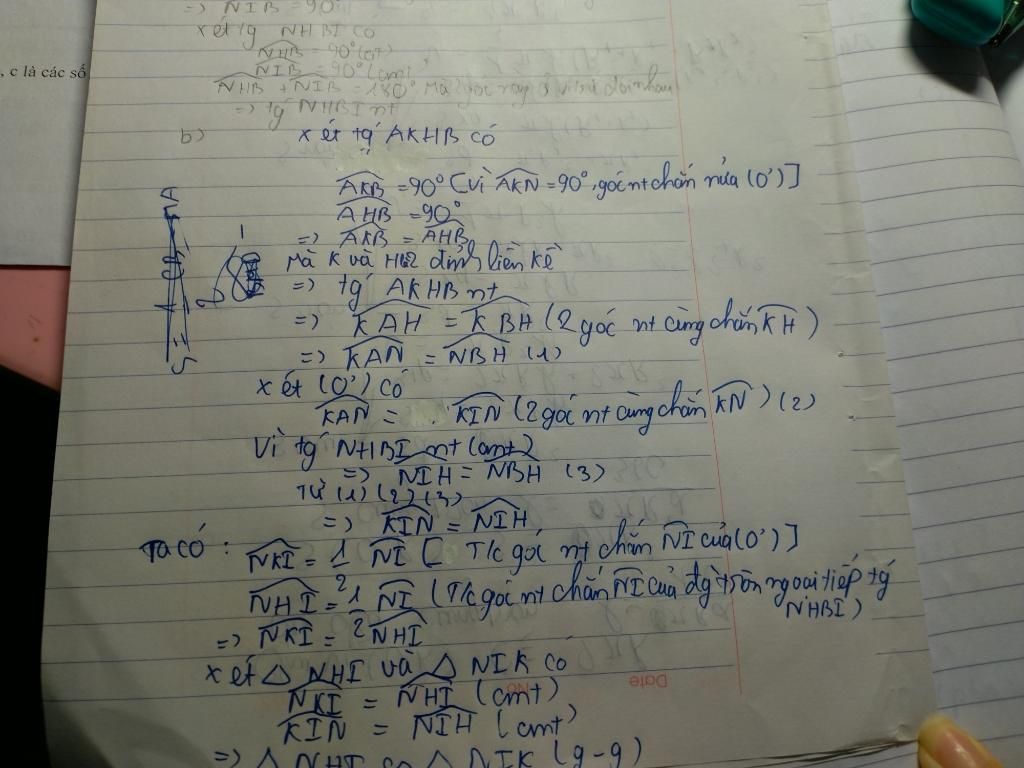 => NIB = 90°
, c là các số
xét tg NHBI có
NHB = 90° (cmt)
NIB = 90° (cmt)
NHB + NIB = 180° Mà 2 góc này ở vị trí đối nhau
=> tg NHBI nt
b) xét tg AKHB có
AKB = 90° [vì AKN = 90°, góc nt chắn nửa (O')]
AHB = 90°
=> AKB = AHB
Mà K và H là 2 đỉnh liền kề
=> tg AKHB nt
=> KAH = KBH (2 góc nt cùng chắn KH)
=> KAN = NBH (1)
xét (O') có
KAN = KIN (2 góc nt cùng chắn KN) (2)
Vì tg NHBI nt (cmt)
=> NIH = NBH (3)
Từ (1) (2) (3)
=> KIN = NIH
Ta có : NKI = 1/2 NI [T/c góc nt chắn NI của (O')]
NHI = 1/2 NI (T/c góc nt chắn NI của đg tròn ngoại tiếp tg
NHBI)
=> NKI = NHI
xét △ NHI và △ NIK có
NKI = NHI (cmt)
KIN = NIH (cmt)
=> △ NHI ∽ △ NIK (g-g)
Date